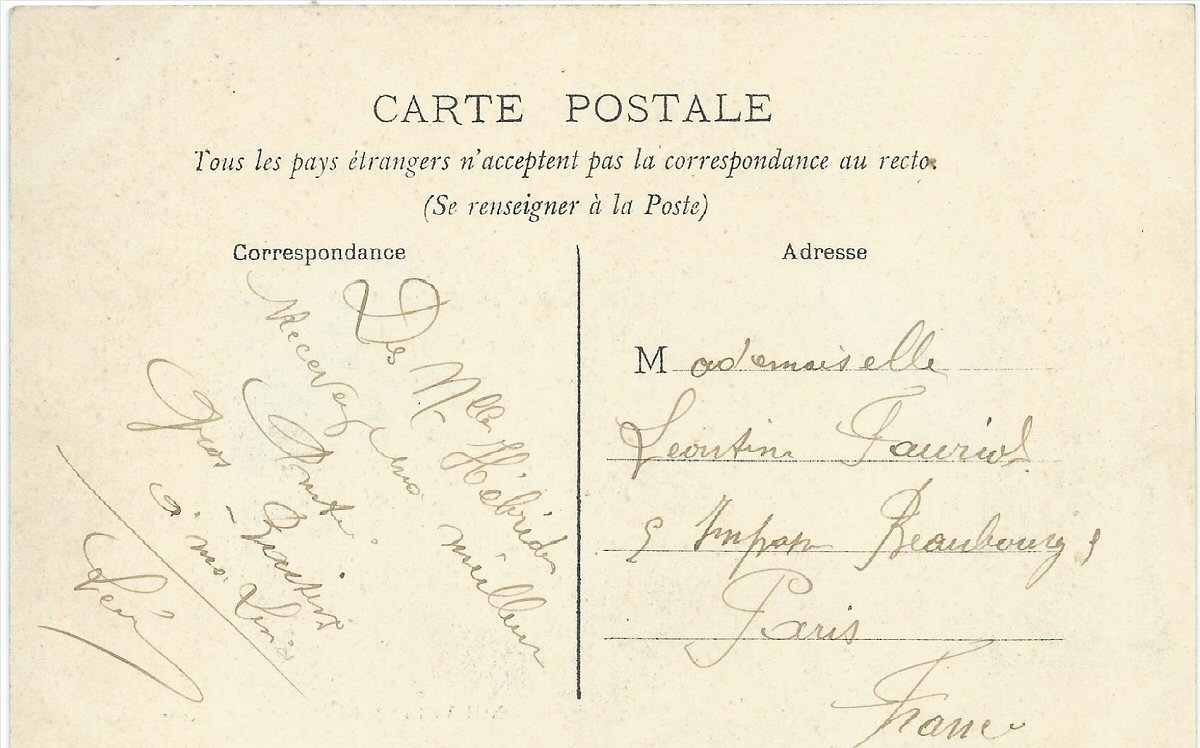 CARTE POSTALE
Tous les pays étrangers n'acceptent pas la correspondance au recto.
(Se renseigner à la Poste)
Correspondance
Des Nlles Hébrides
Recevez ma meilleur
Amitié.
Gros Baisers
à ma
Adresse
Mademoiselle
Leontine Fauriol
Impass Beaubourg
Paris
France